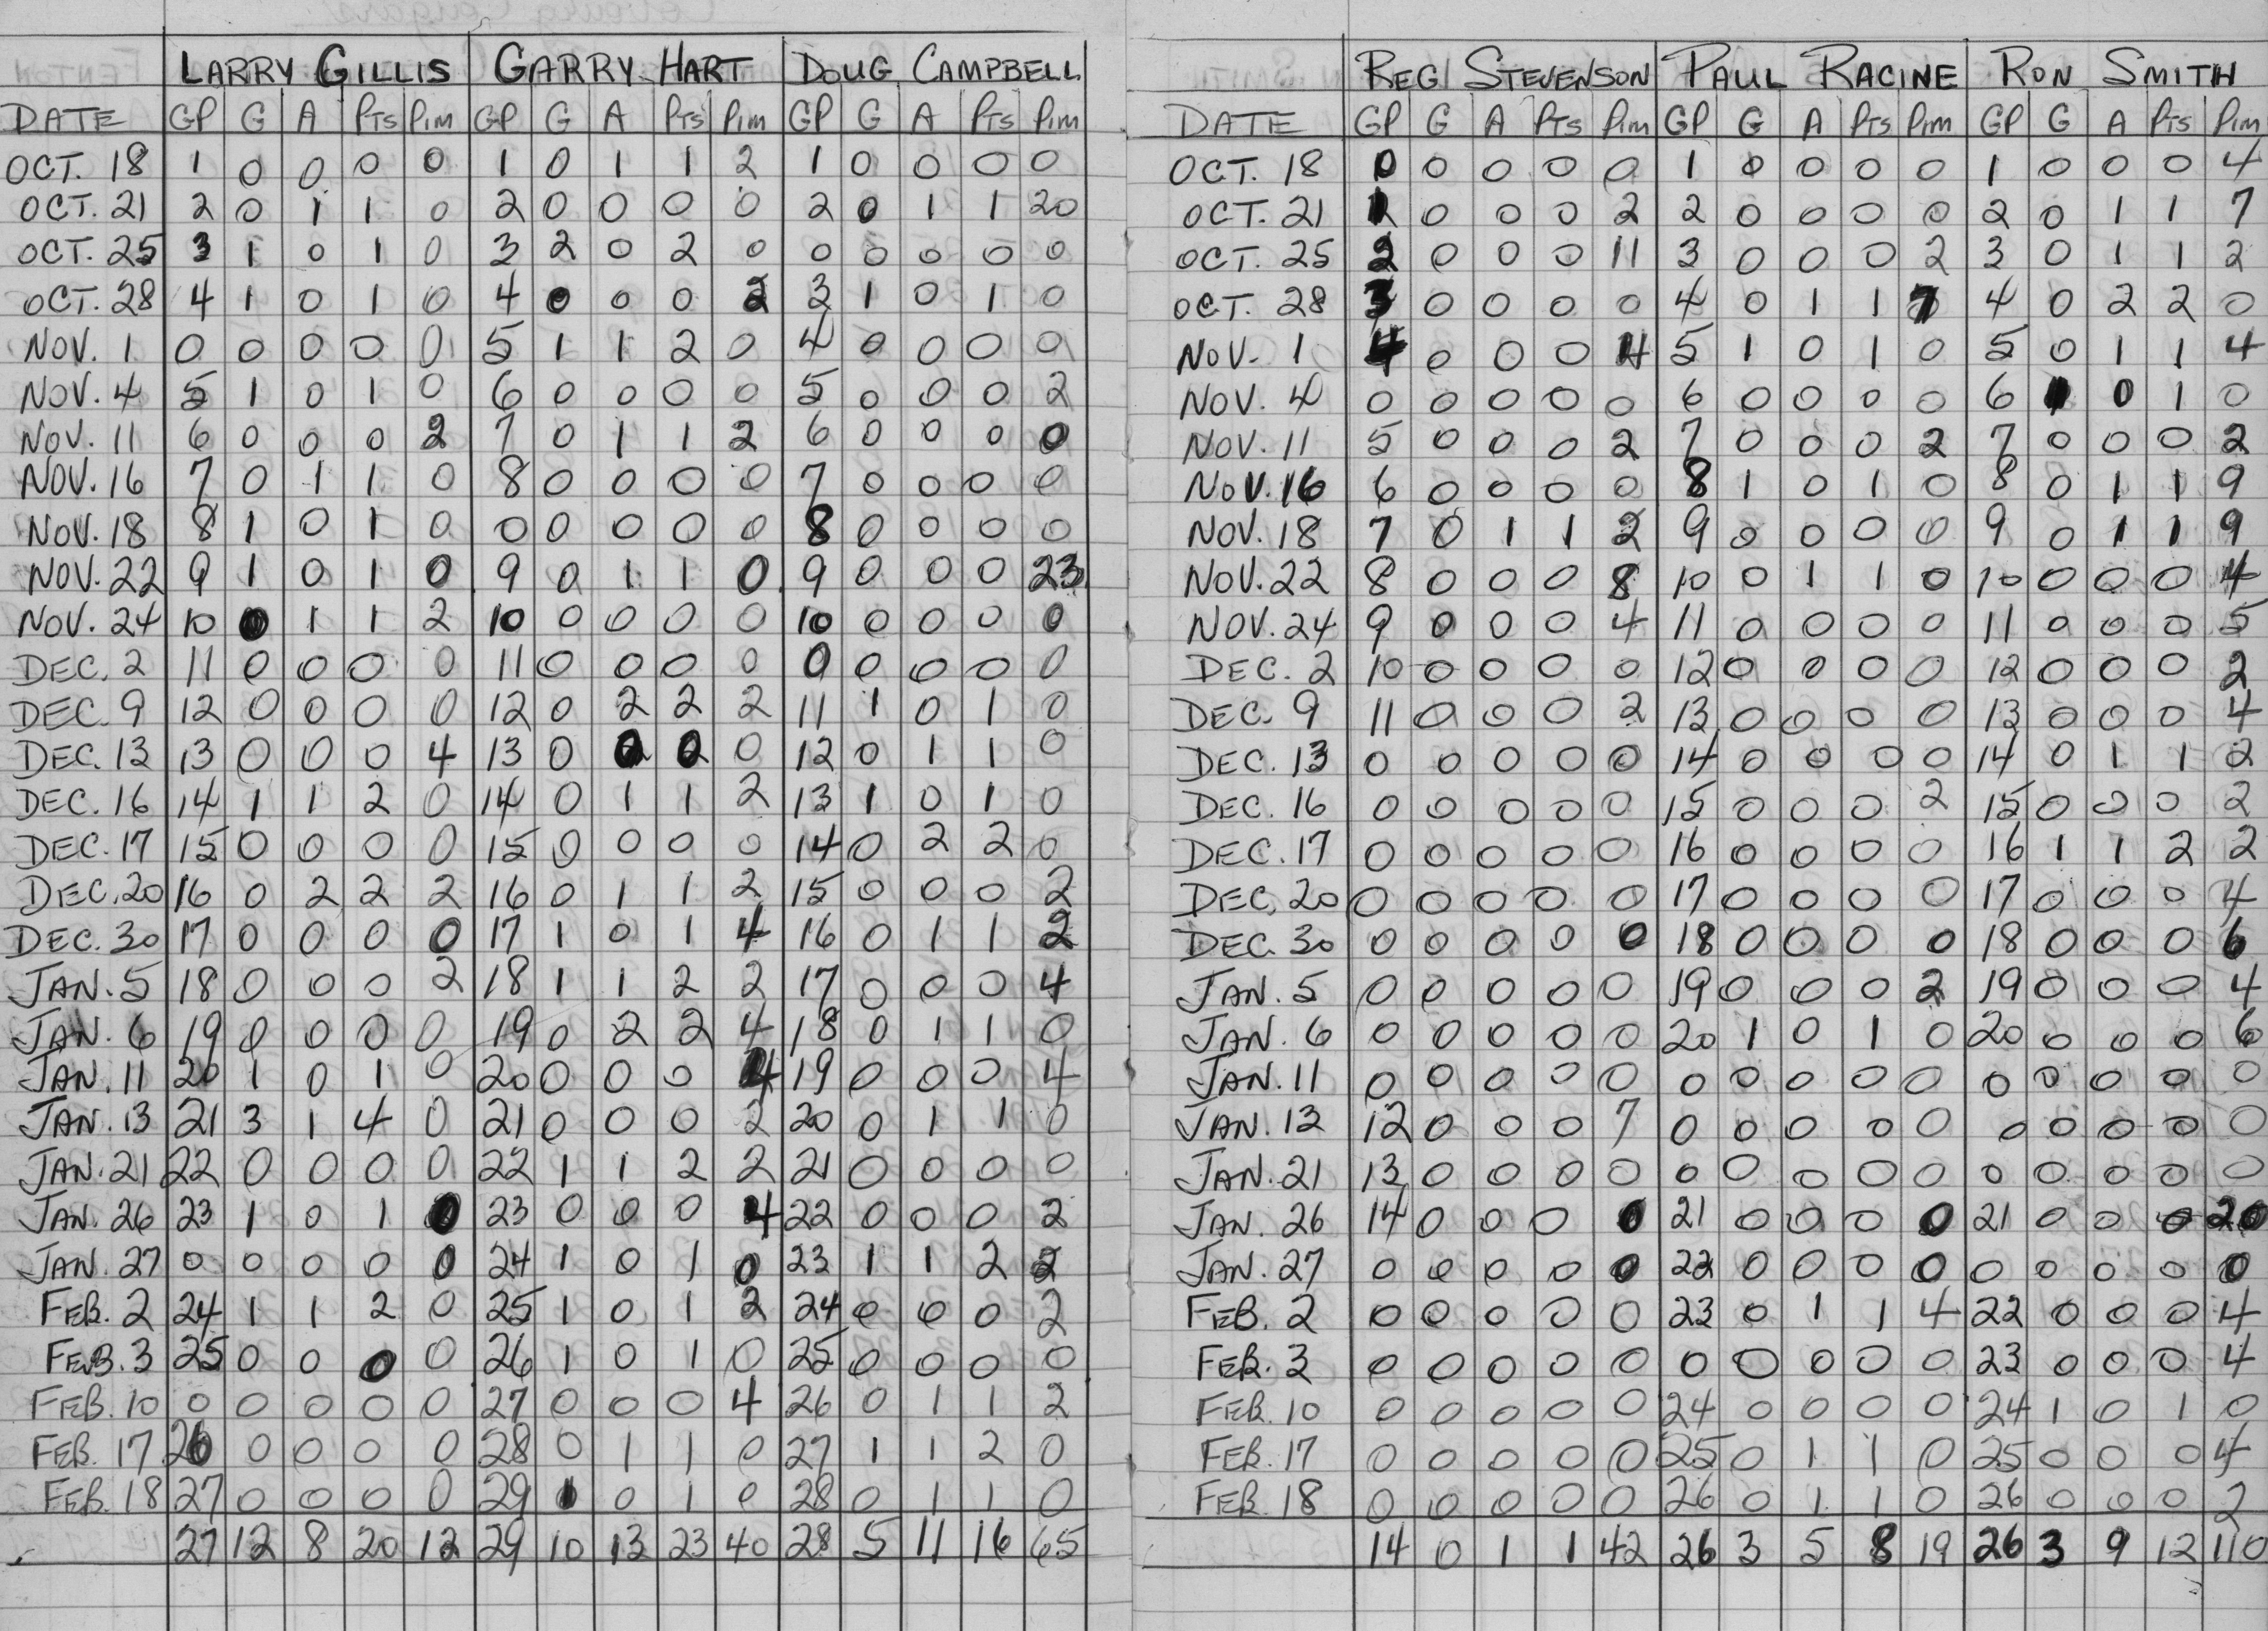 LARRY GILLIS GARRY HART DOUG CAMPBELL
DATE GP G A PTS PIM GP G A PTS PIM GP G A PTS PIM
OCT. 18 1 0 0 0 0 1 0 1 1 2 1 0 0 0 0
OCT. 21 2 0 1 1 0 2 0 0 0 0 2 0 1 1 20
OCT. 25 3 1 0 1 0 3 2 0 2 0 0 0 0 0 0
OCT. 28 4 1 0 1 0 4 0 0 0 2 3 1 0 1 0
NOV. 1 0 0 0 0 0 5 1 1 2 0 4 0 0 0 0
NOV. 4 5 1 0 1 0 6 0 0 0 0 5 0 0 0 2
NOV. 11 6 0 0 0 2 7 0 1 1 2 6 0 0 0 0
NOV. 16 7 0 1 1 0 8 0 0 0 0 7 0 0 0 0
NOV. 18 8 1 0 1 0 0 0 0 0 0 8 0 0 0 0
NOV. 22 9 1 0 1 0 9 0 1 1 0 9 0 0 0 23
NOV. 24 10 0 1 1 2 10 0 0 0 0 10 0 0 0 0
DEC. 2 11 0 0 0 0 11 0 0 0 0 0 0 0 0 0
DEC. 9 12 0 0 0 0 12 0 2 2 2 11 1 0 1 0
DEC. 13 13 0 0 0 4 13 0 0 0 0 12 0 1 1 0
DEC. 16 14 1 1 2 0 14 0 1 1 2 13 1 0 1 0
DEC. 17 15 0 0 0 0 15 0 0 0 0 14 0 2 2 0
DEC. 20 16 0 2 2 2 16 0 1 1 2 15 0 0 0 2
DEC. 30 17 0 0 0 0 17 1 0 1 4 16 0 1 1 2
JAN. 5 18 0 0 0 2 18 1 1 2 2 17 0 0 0 4
JAN. 6 19 0 0 0 0 19 0 2 2 4 18 0 1 1 0
JAN. 11 20 1 0 1 0 20 0 0 0 4 19 0 0 0 4
JAN. 13 21 3 1 4 0 21 0 0 0 2 20 0 1 1 0
JAN. 21 22 0 0 0 0 22 1 1 2 2 21 0 0 0 0
JAN. 26 23 1 0 1 0 23 0 0 0 4 22 0 0 0 2
JAN. 27 0 0 0 0 0 24 1 0 1 0 23 1 1 2 2
FEB. 2 24 1 1 2 0 25 1 0 1 2 24 0 0 0 2
FEB. 3 25 0 0 0 0 26 1 0 1 0 25 0 0 0 0
FEB. 10 0 0 0 0 0 27 0 0 0 4 26 0 1 1 2
FEB. 17 26 0 0 0 0 28 0 1 1 0 27 1 1 2 0
FEB. 18 27 0 0 0 0 29 1 0 1 0 28 0 1 1 0
27 12 8 20 12 29 10 13 23 40 28 5 11 16 65
REG STEVENSON PAUL RACINE RON SMITH
DATE GP G A PTS PIM GP G A PTS PIM GP G A PTS PIM
OCT. 18 0 0 0 0 0 1 0 0 0 0 1 0 0 0 4
OCT. 21 1 0 0 0 2 2 0 0 0 0 2 0 1 1 7
OCT. 25 2 0 0 0 11 3 0 0 0 2 3 0 1 1 2
OCT. 28 3 0 0 0 0 4 0 1 1 7 4 0 2 2 0
NOV. 1 4 0 0 0 4 5 1 0 1 0 5 0 1 1 4
NOV. 4 0 0 0 0 0 6 0 0 0 0 6 1 0 1 0
NOV. 11 5 0 0 0 2 7 0 0 0 2 7 0 0 0 2
NOV. 16 6 0 0 0 0 8 1 0 1 0 8 0 1 1 9
NOV. 18 7 0 1 1 2 9 0 0 0 0 9 0 1 1 9
NOV. 22 8 0 0 0 8 10 0 1 1 0 10 0 0 0 4
NOV. 24 9 0 0 0 4 11 0 0 0 0 11 0 0 0 5
DEC. 2 10 0 0 0 0 12 0 0 0 0 12 0 0 0 2
DEC. 9 11 0 0 0 2 13 0 0 0 0 13 0 0 0 4
DEC. 13 0 0 0 0 0 14 0 0 0 0 14 0 1 1 2
DEC. 16 0 0 0 0 0 15 0 0 0 2 15 0 0 0 2
DEC. 17 0 0 0 0 0 16 0 0 0 0 16 1 1 2 2
DEC. 20 0 0 0 0 0 17 0 0 0 0 17 0 0 0 4
DEC. 30 0 0 0 0 0 18 0 0 0 0 18 0 0 0 6
JAN. 5 0 0 0 0 0 19 0 0 0 2 19 0 0 0 4
JAN. 6 0 0 0 0 0 20 1 0 1 0 20 0 0 0 6
JAN. 11 0 0 0 0 0 0 0 0 0 0 0 0 0 0 0
JAN. 13 12 0 0 0 7 0 0 0 0 0 0 0 0 0 0
JAN. 21 13 0 0 0 0 0 0 0 0 0 0 0 0 0 0
JAN. 26 14 0 0 0 0 21 0 0 0 0 21 0 0 0 20
JAN. 27 0 0 0 0 0 22 0 0 0 0 0 0 0 0 0
FEB. 2 0 0 0 0 0 23 0 1 1 4 22 0 0 0 4
FEB. 3 0 0 0 0 0 0 0 0 0 0 23 0 0 0 4
FEB. 10 0 0 0 0 0 24 0 0 0 0 24 1 0 1 0
FEB. 17 0 0 0 0 0 25 0 1 1 0 25 0 0 0 4
FEB. 18 0 0 0 0 0 26 0 1 1 0 26 0 0 0 2
14 0 1 1 42 26 3 5 8 19 26 3 9 12 110